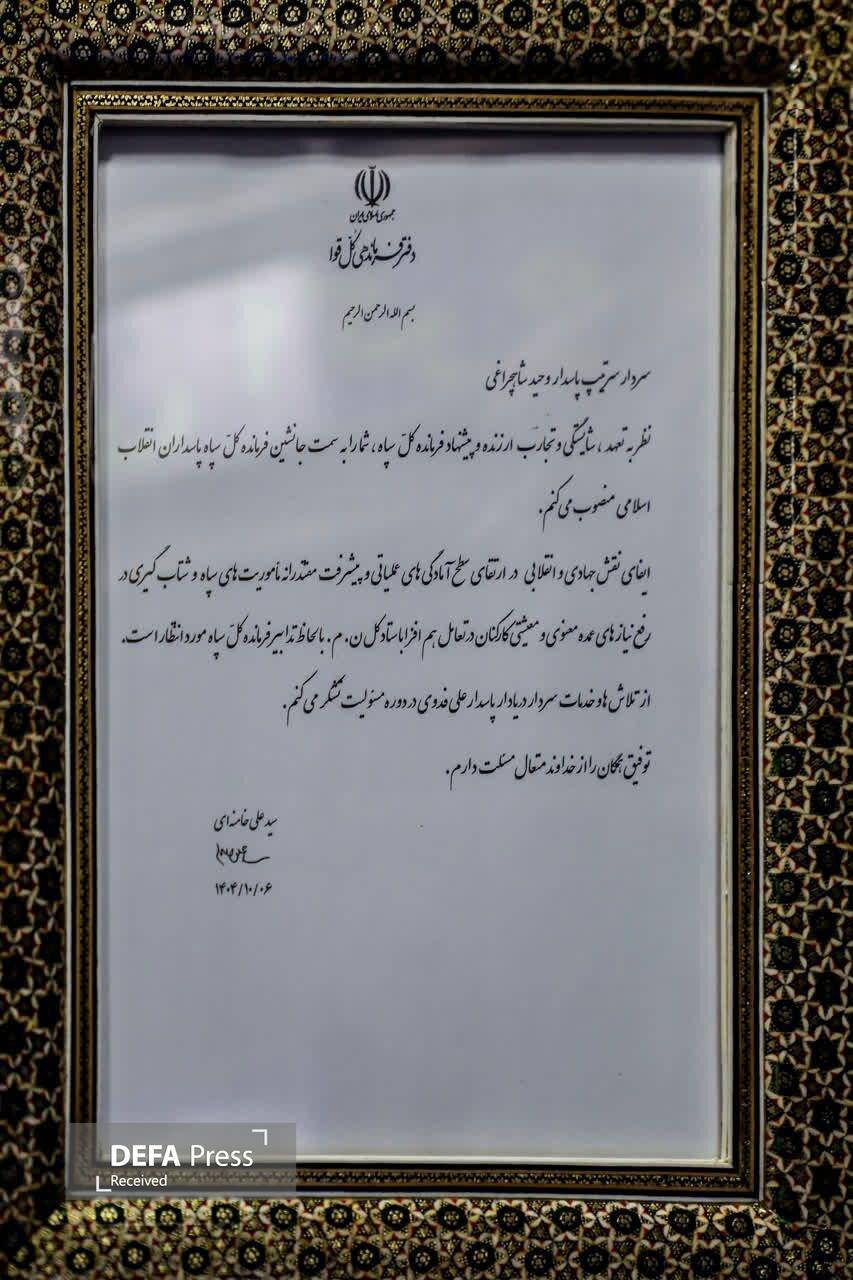 جمهوری اسلامی ایران
دفتر فرماندهی کل قوا
بسم الله الرحمن الرحیم
سردار سرتیپ پاسدار وحید شاهچراغی
نظر به تعهد، شایستگی و تجارب ارزنده و پیشنهاد فرمانده کلّ سپاه، شما را به سمت جانشین فرمانده کلّ سپاه پاسداران انقلاب
اسلامی منصوب می‌کنم.
ایفای نقش جهادی و انقلابی در ارتقای سطح آمادگی‌های عملیاتی و پیشرفت مقتدرانه مأموریت‌های سپاه و شتاب‌گیری در
رفع نیازهای عمده معنوی و معیشتی کارکنان در تعامل هم‌افزا با ستاد کل ن. م. با لحاظ تدابیر فرمانده کلّ سپاه مورد انتظار است.
از تلاش‌ها و خدمات سردار دریادار پاسدار علی فدوی در دوره مسئولیت تشکر می‌کنم.
توفیق همگان را از خداوند متعال مسئلت دارم.
سید علی خامنه‌ای
۱۴۰۴/۱۰/۰۶
DEFA Press
Received